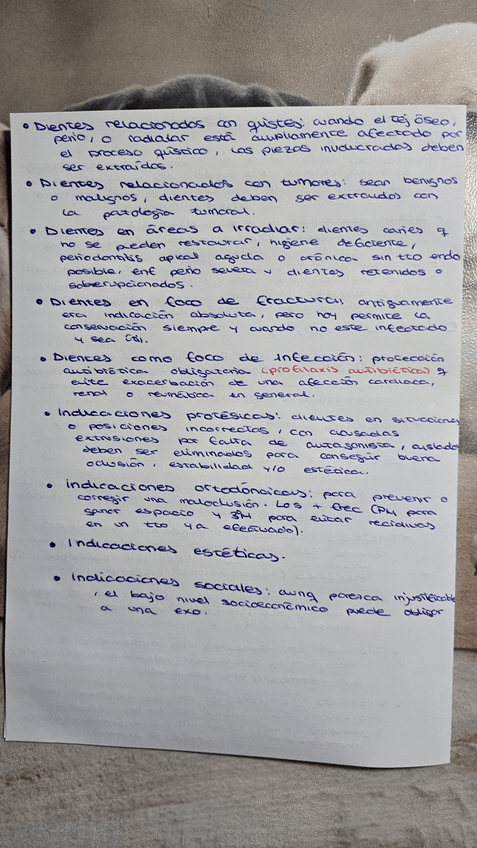 • Dientes relacionados con quistes: cuando el tej óseo,
perio, o radicular está ampliamente afectado por
el proceso quístico, las piezas involucradas deben
ser extraídos.
• Dientes relacionados con tumores: sean benignos
o malignos, dientes deben ser extraídos con
la patología tumoral.
• Dientes en áreas a irradiar: dientes caries q
no se pueden restaurar, higiene deficiente,
periodontitis apical aguda o crónica sin tto endo
posible, enf perio severa y dientes retenidos o
semierupcionados.
• Dientes en foco de fractura: antiguamente
era indicación absoluta, pero hoy permite la
conservación siempre y cuando no este infectado
y sea
• Dientes como foco de infección: protección
antibiótica obligatoria (profilaxis antibiótica) q
evite exacerbación de una afección cardiaca,
renal o reumática en general.
• Indicaciones protésicas: dientes en situaciones
o posiciones incorrectas, con causadas
extrusiones por falta de antagonista, aislados
deben ser eliminados para conseguir buena
oclusión, estabilidad y/o estética.
• Indicaciones ortodónicas: para prevenir o
corregir una maloclusión. Los + frec (PM para
ganar espacio y 3M para evitar recidivas
en un tto ya efectuado).
• Indicaciones estéticas.
• Indicaciones sociales: aunq parezca injustificable
, el bajo nivel socioeconómico puede obligar
a una exo.